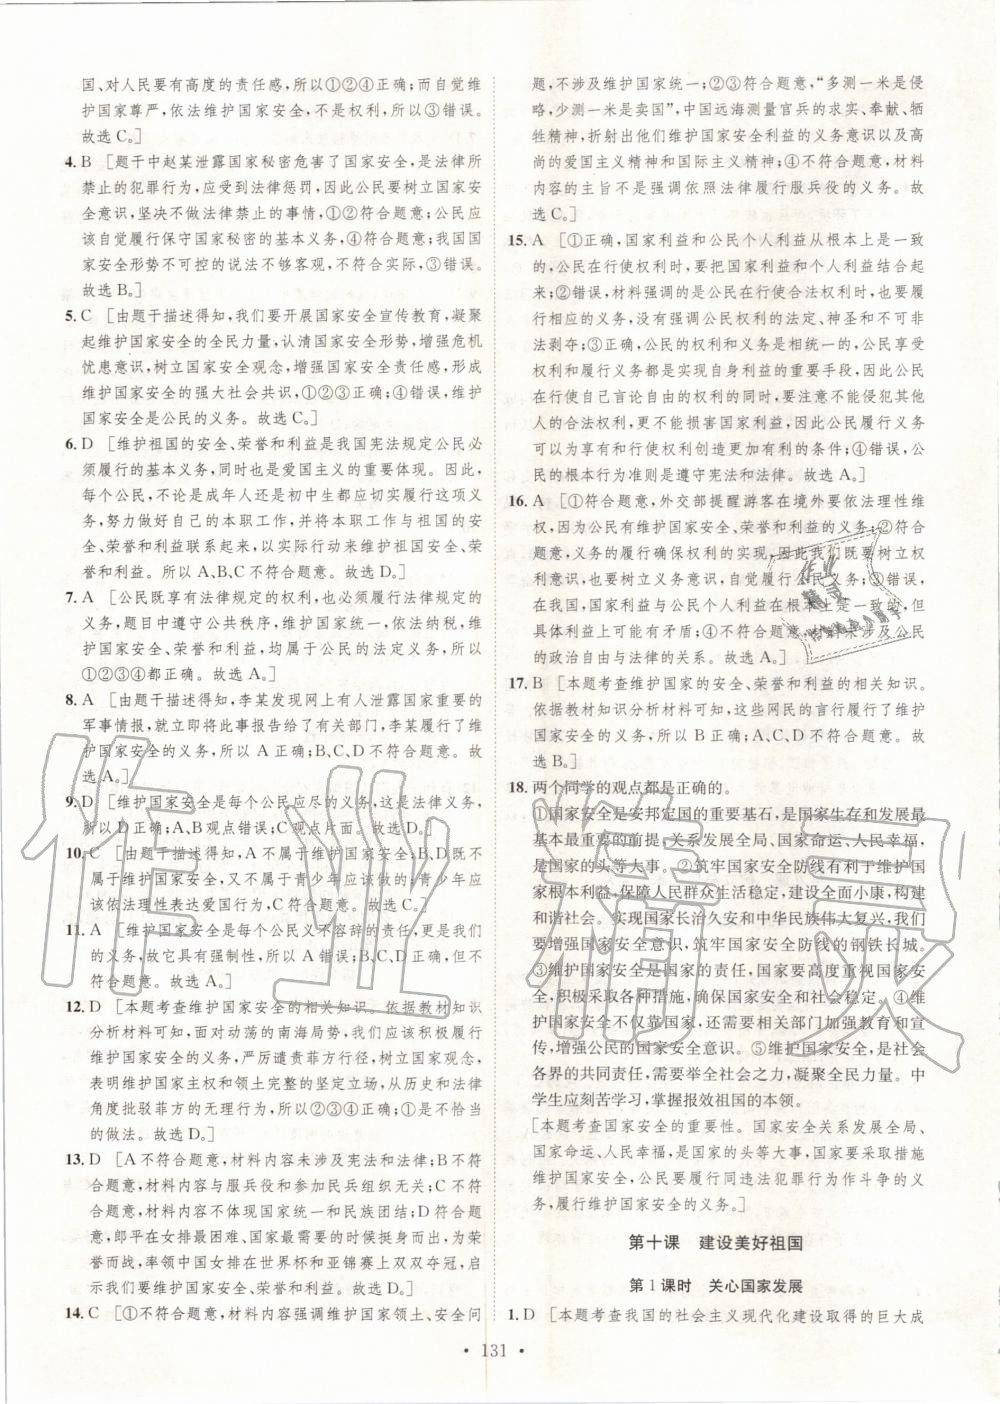 国、对人民要有高度的责任感,所以①②④正确;而自觉维
护国家尊严,依法维护国家安全,不是权利,所以③错误。
故选 C。]
4. B [题干中赵某泄露国家秘密危害了国家安全,是法律所
禁止的犯罪行为,应受到法律惩罚,因此公民要树立国家安
全意识,坚决不做法律禁止的事情,①②符合题意;公民应
该自觉履行保守国家秘密的基本义务,④符合题意;我国国
家安全形势不可控的说法不够客观,不符合实际,③错误。
故选 B。]
5. C [由题干描述得知,我们要开展国家安全宣传教育,凝聚
起维护国家安全的全民力量,认清国家安全形势,增强危机
忧患意识,树立国家安全观念,增强国家安全责任感,形成
维护国家安全的强大社会共识,①②③正确;④错误,维护
国家安全是公民的义务。故选 C。]
6. D [维护祖国的安全、荣誉和利益是我国宪法规定公民必
须履行的基本义务,同时也是爱国主义的重要体现。因此,
每个公民,不论是成年人还是初中生都应切实履行这项义
务,努力做好自己的本职工作,并将本职工作与祖国的安
全、荣誉和利益联系起来,以实际行动来维护祖国安全、荣
誉和利益。所以 A、B、C 不符合题意。故选 D。]
7. A [公民既享有法律规定的权利,也必须履行法律规定的
义务,题目中遵守公共秩序,维护国家统一,依法纳税,维
护国家安全、荣誉和利益,均属于公民的法定义务,所以
①②③④都正确。故选 A。]
8. A [由题干描述得知,李某发现网上有人泄露国家重要的
军事情报,就立即将此事报告给了有关部门,李某履行了维
护国家安全的义务,所以 A 正确;B、C、D 不符合题意。故
选 A。]
9. D [维护国家安全是每个公民应尽的义务,这是法律义务,
所以 D 正确;A、B 观点错误;C 观点片面。故选 D。]
10. C [由题干描述得知,A 不属于维护国家安全;B、D 既不
属于维护国家安全,又不属于青少年应该做的;青少年应
该依法理性表达爱国行为,C 符合题意。故选 C。]
11. A [维护国家安全是每个公民义不容辞的责任,更是我们
的义务,故它具有强制性,所以 A 错误;B、C、D 正确,但不
符合题意。故选 A。]
12. D [本题考查维护国家安全的相关知识。依据教材知识
分析材料可知,面对动荡的南海局势,我们应该积极履行
维护国家安全的义务,严厉谴责菲方行径,树立国家观念,
表明维护国家主权和领土完整的坚定立场,从历史和法律
角度批驳菲方的无理行为,所以②③④正确;①是不恰当
的做法。故选 D。]
13. D [A 不符合题意,材料内容未涉及宪法和法律;B 不符
合题意,材料内容与服兵役和参加民兵组织无关;C 不符
合题意,材料内容未体现国家统一和民族团结;D 符合题
意,郎平在女排最困难、国家最需要的时候挺身而出,勇担
重任,率领中国女排在世界杯和亚锦赛上双双夺冠,启示
我们要积极维护国家荣誉和利益。故选 D。]
14. C [①不符合题意,材料内容强调维护国家领土、安全问
题,不涉及维护国家统一;②③符合题意,“多测一米是侵
略,少测一米是卖国”,中国远海测量官兵的求实、奉献、牺
牲精神,折射出他们维护国家安全利益的义务意识以及高
尚的爱国主义精神和国际主义精神;④不符合题意,材料
内容的主旨不是强调依照法律履行服兵役的义务。故
选 C。]
15. A [①正确,国家利益和公民个人利益从根本上是一致
的,公民在行使权利时,要把国家利益和个人利益结合起
来;②错误,材料强调的是公民在行使合法权利时,也要履
行相应的义务,没有强调公民权利的法定、神圣和不可非
法剥夺;③正确,公民的权利和义务是相统一的,公民享受
权利和履行义务都是实现自身利益的重要手段,因此公民
在行使自己言论自由的权利的同时,要注意不能侵犯其他
人的合法权利,更不能损害国家的利益,公民履行义务可
以为享有和行使权利创造更加有利的条件;④错误,公
民的根本行为准则是遵守宪法和法律。故选 A。]
16. A [①符合题意,外交部提醒游客在境外要依法理性维
权,因为公民有维护国家安全、荣誉和利益的义务;②符合
题意,义务的履行确保权利的实现,因此我们既要树立权
利意识,也要树立义务意识,自觉履行公民义务;③错误,
国家利益与公民个人利益在根本上是一致的,但
具体利益上可能有矛盾;④不符合题意,材料未涉及公民
的政治自由与法律的关系。故选 A。]
17. B [本题考查维护国家的安全、荣誉和利益的相关知识。
依据教材知识分析材料可知,这些网民的言行履行了维护
国家安全的义务,所以 B 正确;A、C、D 不符合题意。故
选 B。]
18. 两个同学的观点都是正确的。
①国家安全是安邦定国的重要基石,是国家生存和发展最
基本最重要的前提,关系发展全局、国家命运、人民幸福,
是国家的头等大事。②筑牢国家安全防线有利于维护国
家根本利益,保障人民群众生活稳定,建设全面小康,构建
和谐社会。实现国家长治久安和中华民族伟大复兴,我们
要增强国家安全意识,筑牢国家安全防线的钢铁长城。
③维护国家安全是国家的责任,国家要高度重视国家安
全,积极采取各种措施,维护国家安全和社会稳定。④维
护国家安全不仅靠国家,还要求相关部门加强教育和宣
传,增强公民的国家安全意识。⑤维护国家安全,是社会
各界的共同责任,需要举全社会之力,凝聚全民力量。中
学生应刻苦学习,掌握报效祖国的本领。
[本题考查国家安全的重要性。国家安全关系发展全局、
国家命运、人民幸福,是国家的头等大事,国家采取措施
维护国家安全,公民要履行同违法犯罪行为作斗争的义
务,履行维护国家安全的义务。]
第十课 建设美好祖国
第 1 课时 关心国家发展
1. D [本题考查我国的社会主义现代化建设取得的巨大成
• 131 •
作业精灵